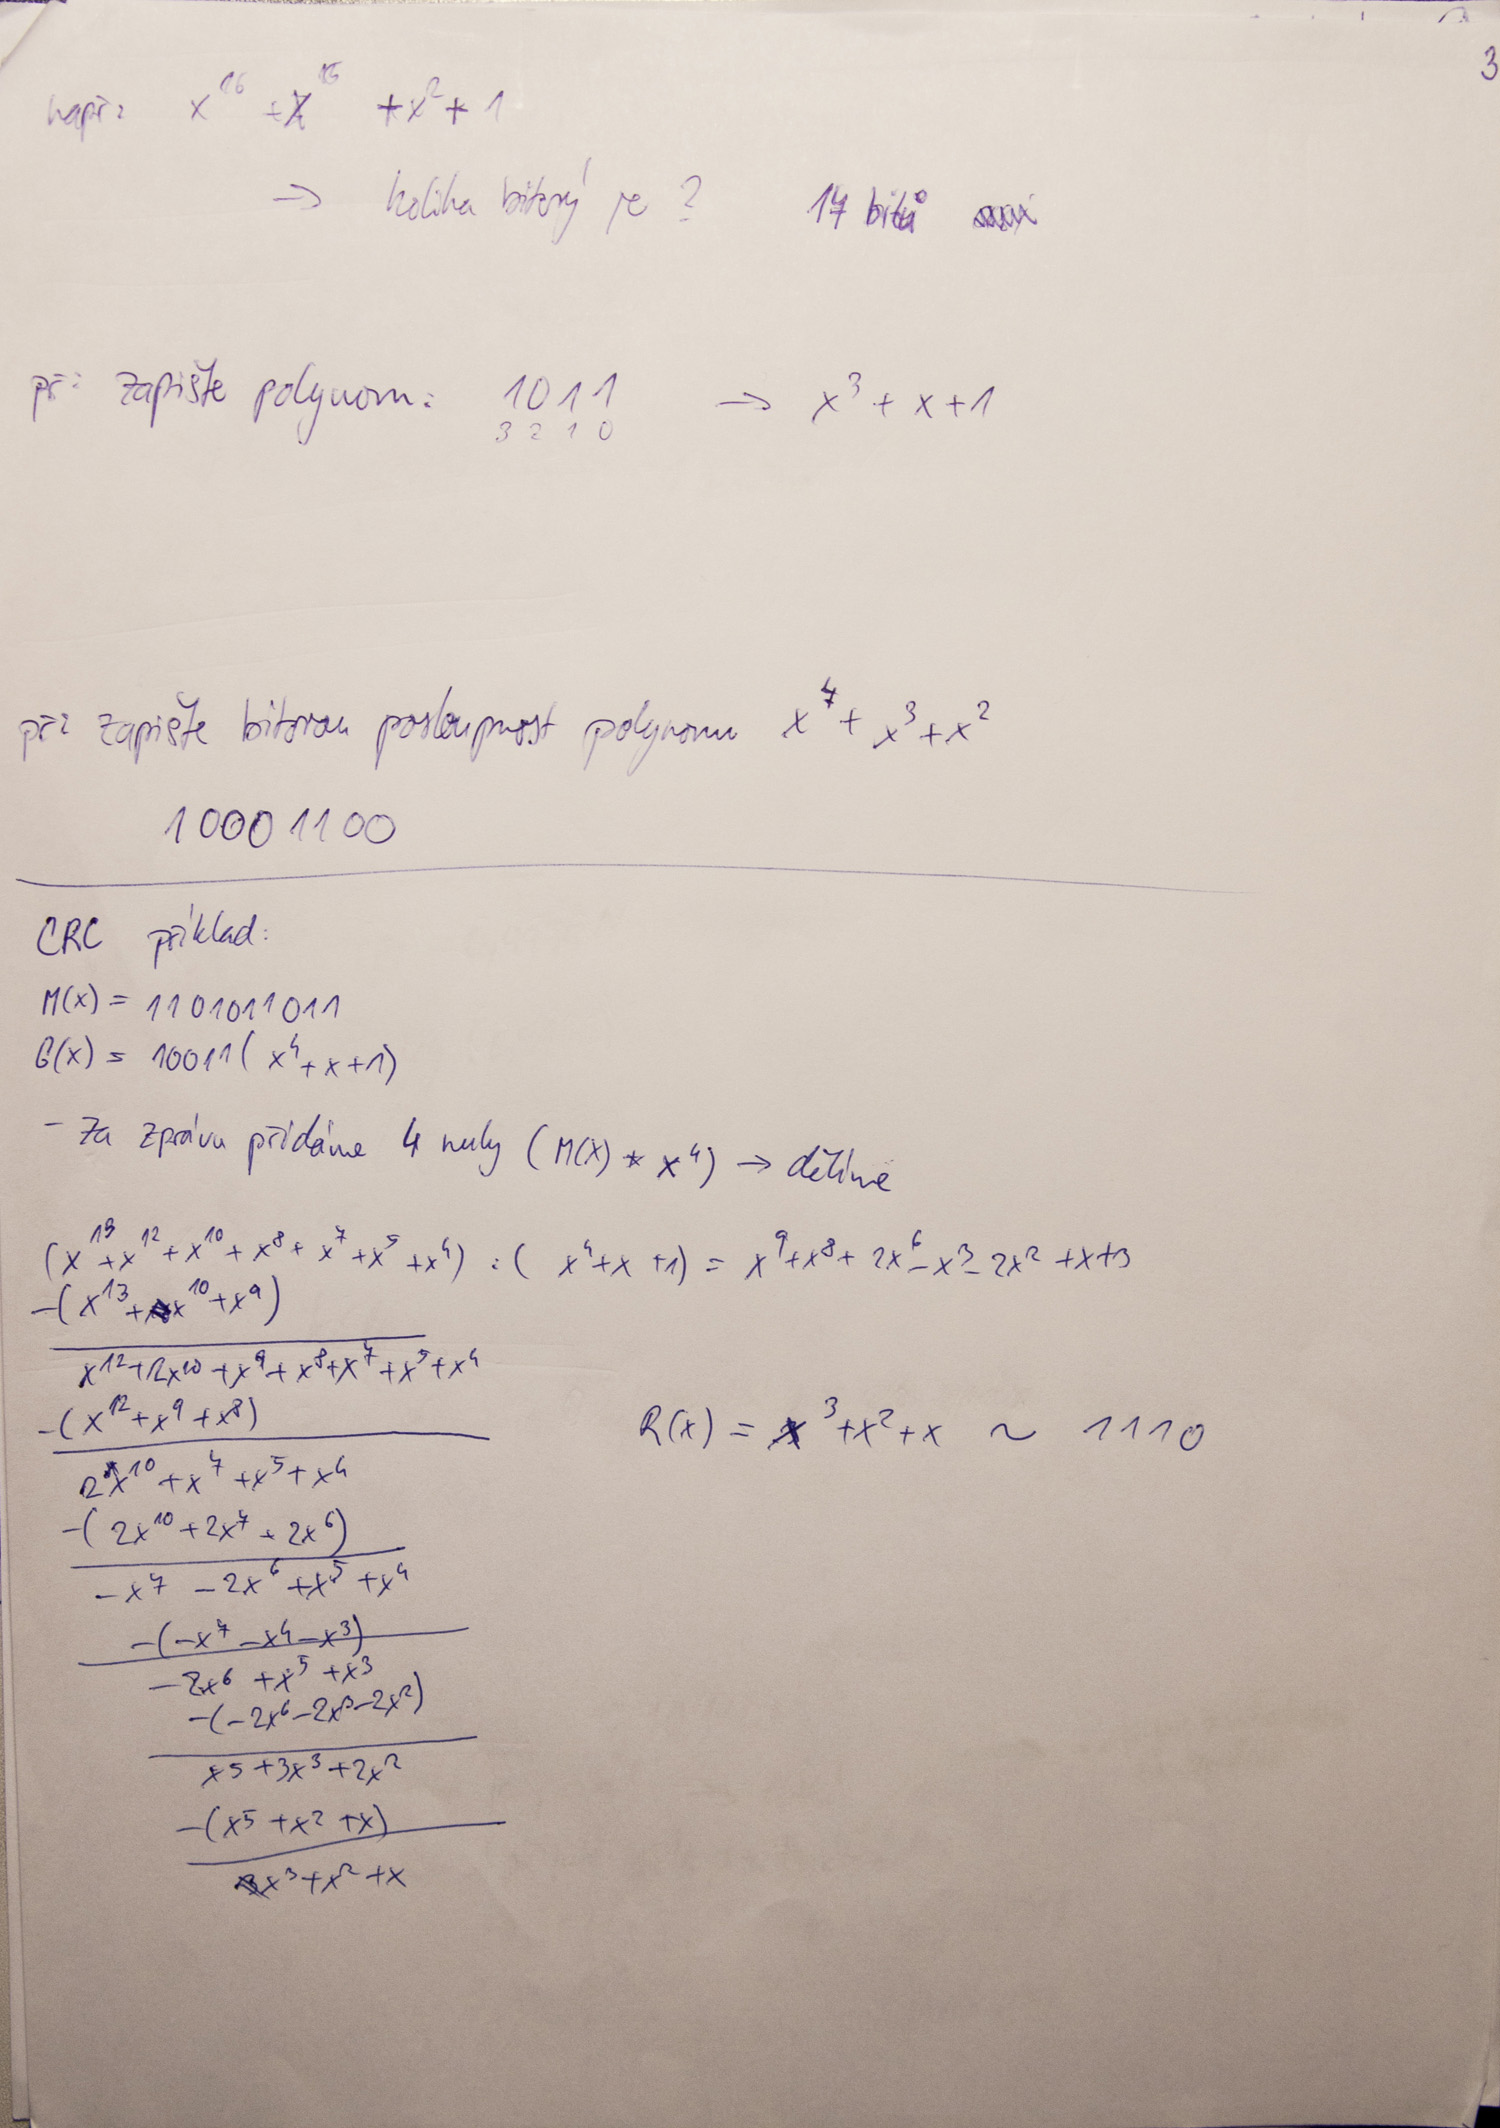 3
např: x^16 + x^15 + x^2 + 1
→ kolika bitový je ? 17 bitů
př: zapište polynom: 1011 → x^3 + x + 1
3 2 1 0
př: zapište bitovou posloupnost polynomu x^7 + x^3 + x^2
10001100
CRC příklad:
M(x) = 1101011011
G(x) = 10011 ( x^4 + x + 1)
- Za zprávu přidáme 4 nuly (M(X) * x^4) → dělíme
(x^13 + x^12 + x^10 + x^8 + x^7 + x^5 + x^4) : ( x^4 + x + 1) = x^9 + x^8 + 2x^6 - x^3 - 2x^2 + x + 3
-(x^13 + x^10 + x^9)
x^12 + 2x^10 + x^9 + x^8 + x^7 + x^5 + x^4
-(x^12 + x^9 + x^8)
R(x) = x^3 + x^2 + x ~ 1110
2x^10 + x^7 + x^5 + x^4
-(2x^10 + 2x^7 + 2x^6)
-x^7 - 2x^6 + x^5 + x^4
-(-x^7 - x^4 - x^3)
-2x^6 + x^5 + x^3
-(-2x^6 - 2x^3 - 2x^2)
x^5 + 3x^3 + 2x^2
-(x^5 + x^2 + x)
x^3 + x^2 + x